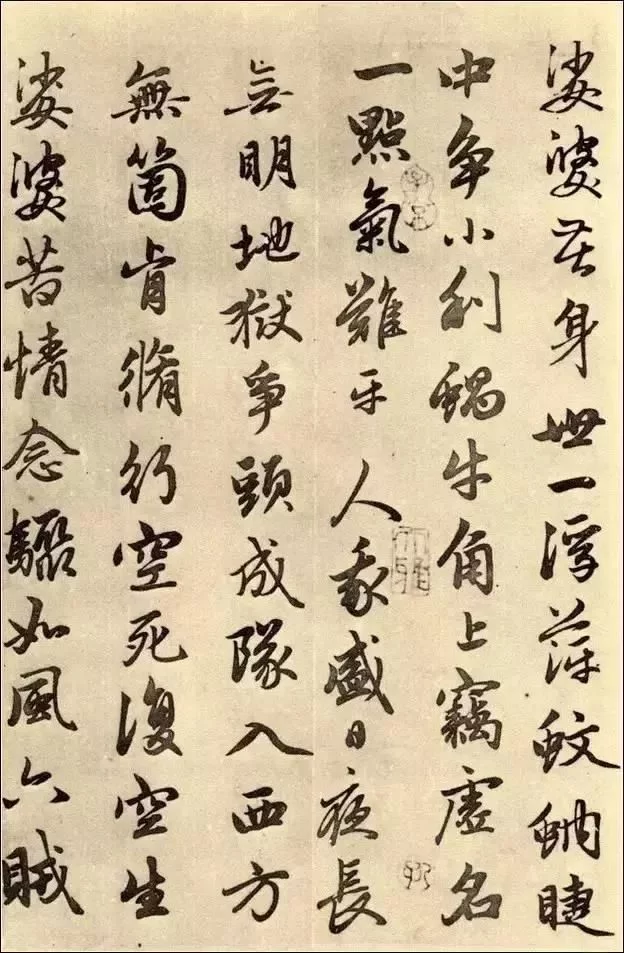 娑婆苦身世一浮萍蚊蚋睫
中争小利蝸牛角上竊虚名
一點氣難平人我盛日夜長
無明地獄爭頭成隊入西方
無箇肯脩行空死復空生
娑婆苦情念驟如風六賊